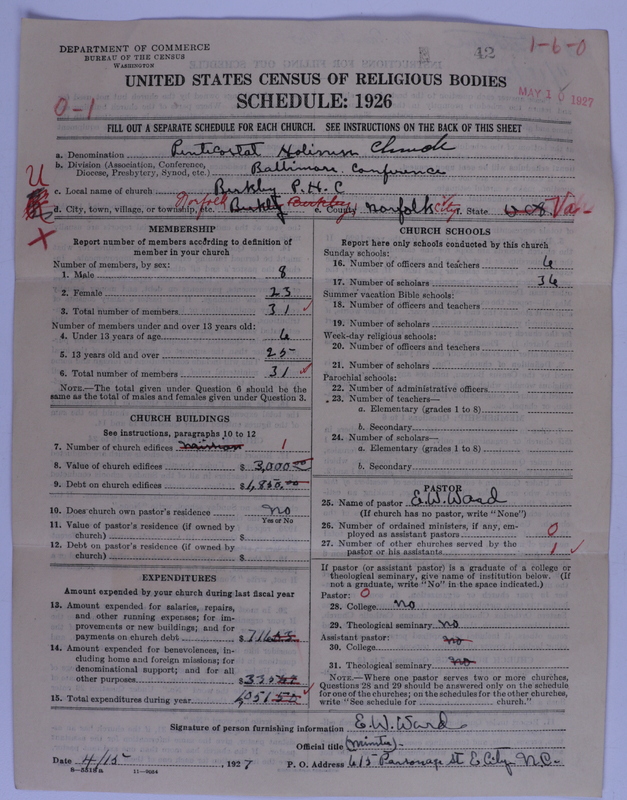 DEPARTMENT OF COMMERCE
BUREAU OF THE CENSUS
WASHINGTON
42
1-6-0
UNITED STATES CENSUS OF RELIGIOUS BODIES
SCHEDULE: 1926
MAY 1 1927
0-1
FILL OUT A SEPARATE SCHEDULE FOR EACH CHURCH. SEE INSTRUCTIONS ON THE BACK OF THIS SHEET
a. Denomination Penticostal Holiness Church
b. Division (Association, Conference, Diocese, Presbytery, Synod, etc.) Baltimore Conference
c. Local name of church Berkly P.H.C
U
d. City, town, village, or township, etc. Norfolk Berkly Berkley e. County Norfolk City f. State Va-
X
MEMBERSHIP
Report number of members according to definition of
member in your church
Number of members, by sex:
1. Male 8
2. Female 23
3. Total number of members 31
Number of members under and over 13 years old:
4. Under 13 years of age 6
5. 13 years old and over 25
6. Total number of members 31
NOTE.—The total given under Question 6 should be the
same as the total of males and females given under Question 3.
CHURCH BUILDINGS
See instructions, paragraphs 10 to 12
7. Number of church edifices 1
8. Value of church edifices $3,000.00
9. Debt on church edifices $1,850.00
10. Does church own pastor's residence no
Yes or No
11. Value of pastor's residence (if owned by
church) $
12. Debt on pastor's residence (if owned by
church) $
EXPENDITURES
Amount expended by your church during last fiscal year
13. Amount expended for salaries, repairs,
and other running expenses; for im-
provements or new buildings; and for
payments on church debt $
14. Amount expended for benevolences, in-
cluding home and foreign missions; for
denominational support; and for all
other purposes $
15. Total expenditures during year
CHURCH SCHOOLS
Report here only schools conducted by this church
Sunday schools:
16. Number of officers and teachers 6
17. Number of scholars 36
Summer vacation Bible schools:
18. Number of officers and teachers
19. Number of scholars
Week-day religious schools:
20. Number of officers and teachers
21. Number of scholars
Parochial schools:
22. Number of administrative officers
23. Number of teachers—
a. Elementary (grades 1 to 8)
b. Secondary
24. Number of scholars—
a. Elementary (grades 1 to 8)
b. Secondary
PASTOR
25. Name of pastor E.W. Ward
(If church has no pastor, write "None")
26. Number of ordained ministers, if any, em-
ployed as assistant pastors 0
27. Number of other churches served by the
pastor or his assistants 1
If pastor (or assistant pastor) is a graduate of a college or
theological seminary, give name of institution below. (If
not a graduate, write "No" in the space indicated.)
Pastor: 0
28. College no
29. Theological seminary no
Assistant pastor:
30. College no
31. Theological seminary no
NOTE.—Where one pastor serves two or more churches,
Questions 28 and 29 should be answered only on the schedule
for one of the churches; on the schedules for the other churches,
write "See schedule for church."
Signature of person furnishing information E.W. Ward
Official title (Minister)
Date 4/15, 1927 P. O. Address 615 Parsonage St E City N.C.
8-5518a 11-9034